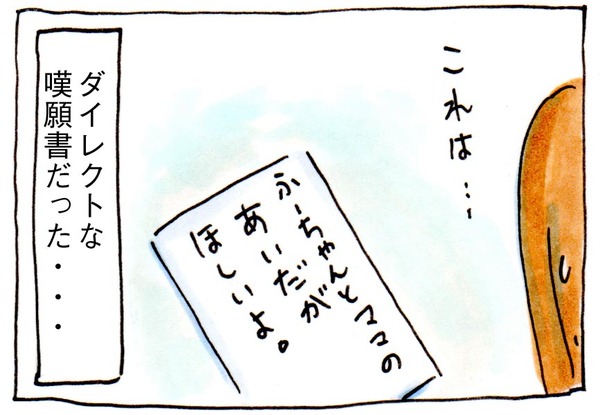 これは…
ふーちゃんとママの
あいだが
ほしいよ。
ダイレクトな
嘆願書だった・・・